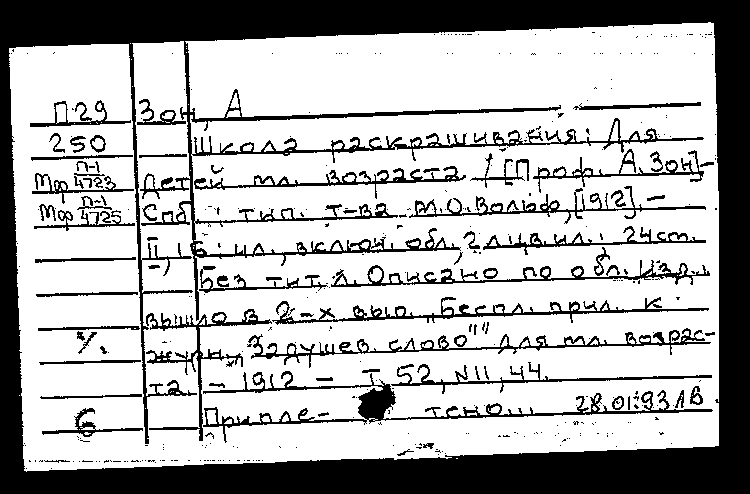 П29 Зон, А
250 Школа раскрашивания: Для
Мф П-1/4723 детей мл. возраста / [Проф. А. Зон]–
Мф П-1/4725 Спб.: тип. т-ва М.О. Вольф, [1912]. –
II, 16: ил., включ. обл., 2 л. цв. ил.; 24см.
Без тит. л. Описано по обл. Изд.
вышло в 2-х вып. „Беспл. прил. к
ч/. журн. „Задушев. слово"" для мл. возрас-
та. – 1912 – Т. 52, N 11, 44.
6 Припле- тено... 28.01.93 ЛВ